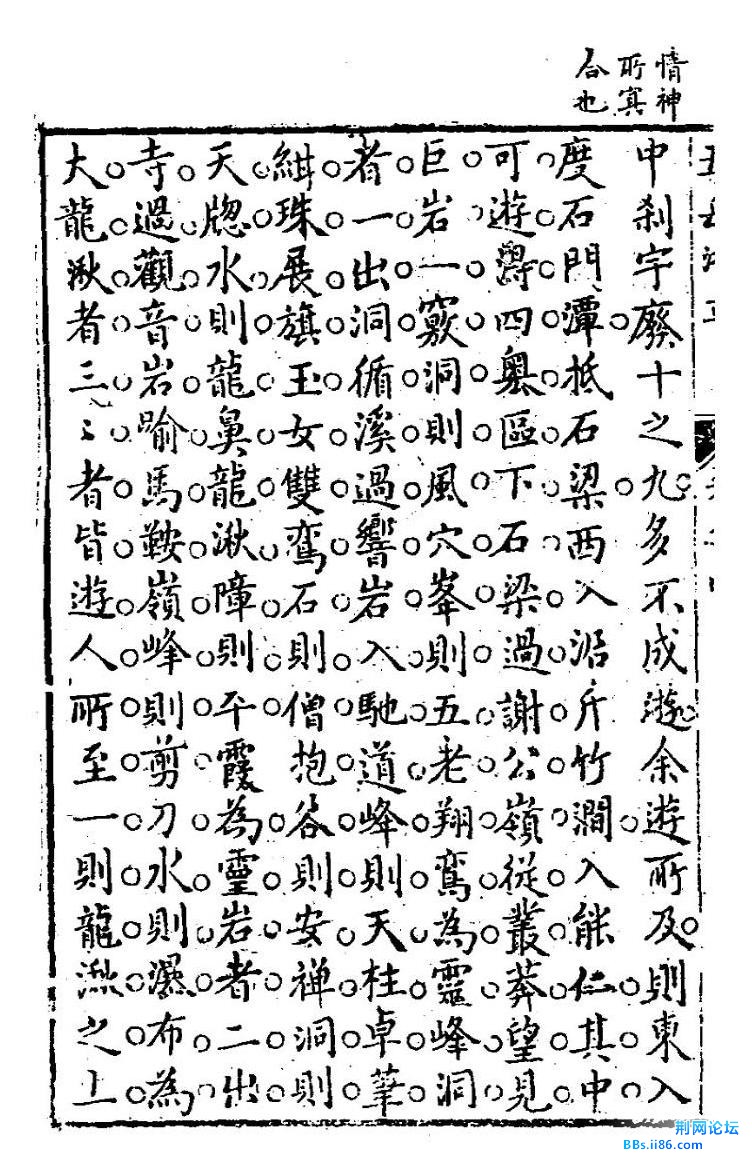 情神
所寘
合也
中刹宇廢十之九多不成遊余遊所及則東入
度石門潭抵石梁西入沿斤竹澗入能仁其中
可遊得四奧區下石梁過謝公嶺從叢莽望見
巨岩一竅洞則風穴峯則五老翔鸞為靈峰洞
者一出洞循溪過響岩入馳道峰則天柱卓筆
紺珠展旗玉女雙鸞石則僧抱谷則安禪洞則
天牕水則龍鼻龍湫障則平霞為靈岩者二出
寺過觀音岩踰馬鞍嶺峰則剪刀水則瀑布為
大龍湫者三〻者皆遊人所至一則龍湫之上
荆网论坛
BBs.ii86.com